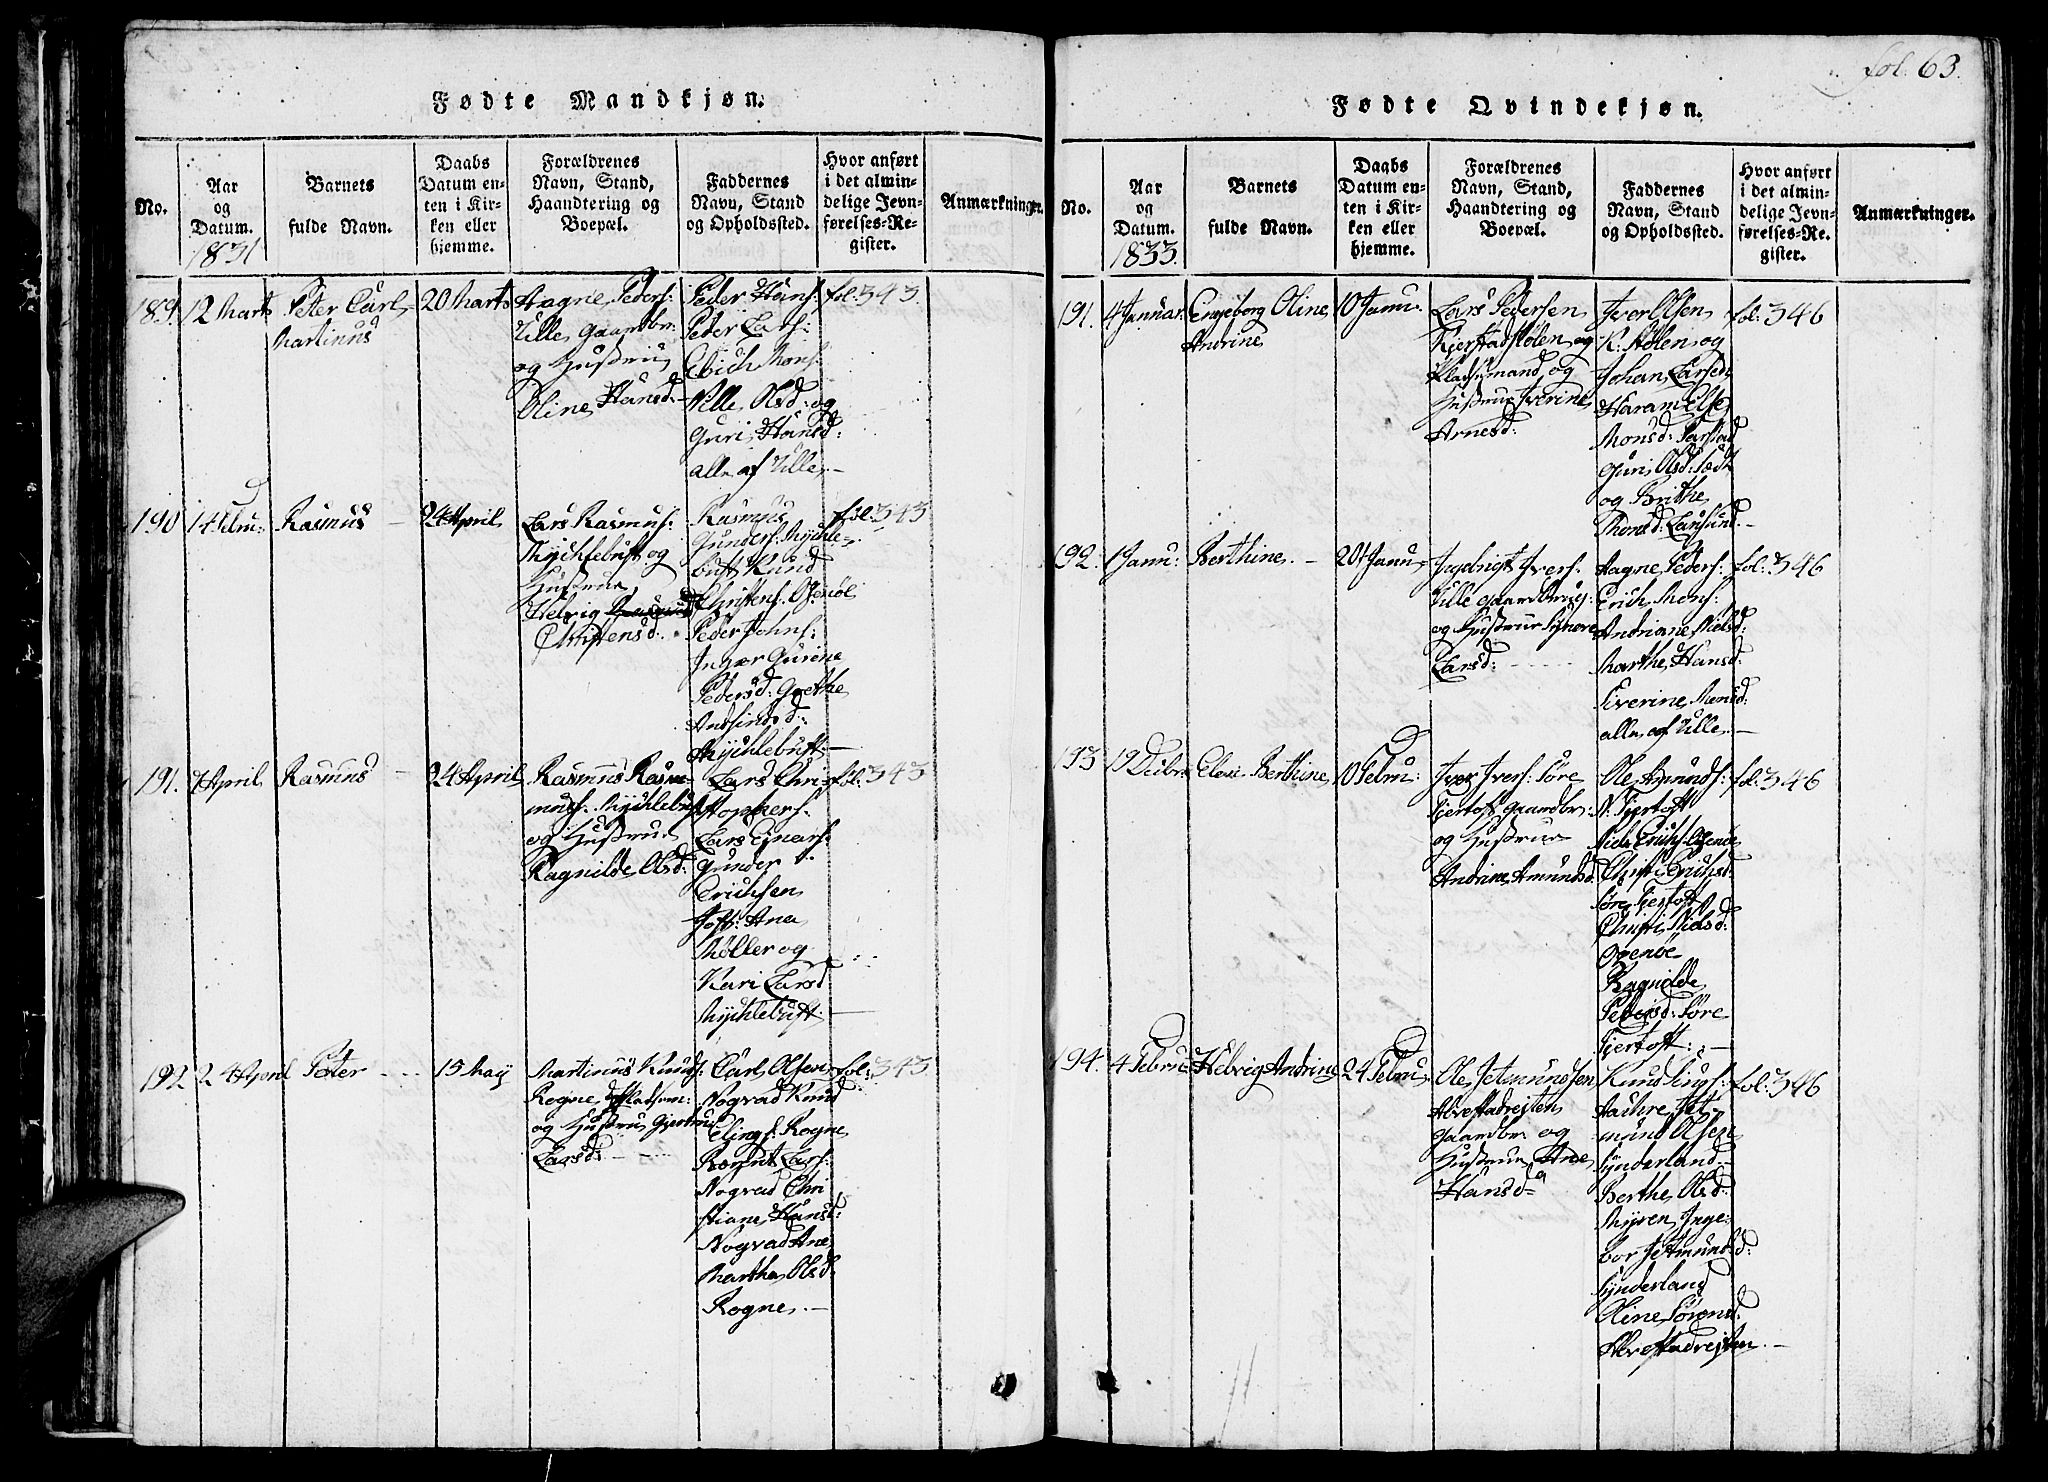 Fødte Mandkjøn.
No.
Aar
og
Datum.
1831
Barnets
fulde Navn.
Daabs
Datum en-
ten i Kir-
ken eller
hjemme.
Forældrenes
Navn, Stand,
Haandtering og
Boepæl.
Faddernes
Navn, Stand
og Opholdssted.
Hvor anført
i det almin-
delige Jevn-
førelses-Re-
gister.
Anmærkninger.
189. 12 Marts
Peter Carl
Martinus
20 Marts
Hagne Peders:
Ulle Gaardbr:
og Hustrue
Oline Hansd.
Peder Hans:
Peder Lars:
Erich Mons:
Pille Olsd: og
Guri Hansd:
alle af Ulle.
fol: 343.
190
14 Febru:
Rasmus
24 April
Lars Rasmus:
Mychlebust og
Hustrue
Helvig
Christensd.
Rasmus
Gunders: Mychle-
bust Knud
Christens.
Peder Johns:
Inger Gurine
Pedersd: Grethe
Mychlebust.
fol: 343
191.
4 April
Rasmus
24 April
Rasmus Ras-
mus: Mychlebust
og Hustrue
Ragnilde Olsd:
Lars Chri-
stophers:
Lars Einars:
Gunder
Erichsen
Joh: Ana
Møller og
Kari Larsd
Mychlebust.
fol: 343
192
24 April
Peter
15 May
Martinus Knuds:
Rogne, Pladsem:
og Hustrue Gjertrue
Larsd:
Carl Olsen
Nogvad Knud
Elings: Rogne
Lars:
Nogvad Chri
stiane Hansd:
Nogvad Ane
Martha Olsd:
Rogne.
fol: 343
fol: 63.
Fødte Qvindekjøn.
No.
Aar
og
Datum.
1833.
Barnets
fulde Navn.
Daabs
Datum en-
ten i Kir-
ken eller
hjemme.
Forældrenes
Navn, Stand,
Haandtering og
Boepæl.
Faddernes
Navn, Stand
og Opholdssted.
Hvor anført
i det almin-
delige Jevn-
førelses-Re-
gister.
Anmærkninger.
191.
4 Januar
Engeborg Oline
Andrine
10 Janu:
Lars Pedersen
Kjerstadstølen og
Pladsemand og
Hustrue Iverine
Arnesd:
Iver Olsen
K: Stølen og
Johan Larsen
Haram Else
Monsd:
Guri Olsd:
og Brithe
Monsd:
fol: 346
192.
1 Janu:
Berthine
20 Janu
Ingebrigt Ivers:
Ulle Gaardbrug:
og Hustrue
Larsd:
Hagne Peders:
Erich Mons:
Andriane Nielsd:
Marthe Hansd:
Siverine Monsd:
alle af Ulle.
fol: 346
193
19 Decbr
Elen Berthine
10 Febru:
Iver Ivers: Søre
Fjertoft Gaardbr:
og Hustrue
Andrine Amundsd.
Ole Amunds:
N: Fjertoft
Niels Erichs:
Christi Erichsd
Søre Fjertoft
Christi Nielsd:
Ragnilde
Pedersd: Søre
Fjertoft:
fol: 346
194.
4 Febru:
Helvig Andrine
24 Febru
Ole Jetmundsen
Alvestadrejten
Gaardbr og
Hustrue Ane
Hansd
Knud
Jet-
mund Olsen
Synderland
Berthe Olsd:
Myren Inge-
bor Jetmundsd:
Synderland
Oline Sørensd:
Alvestadrejten.
fol: 346